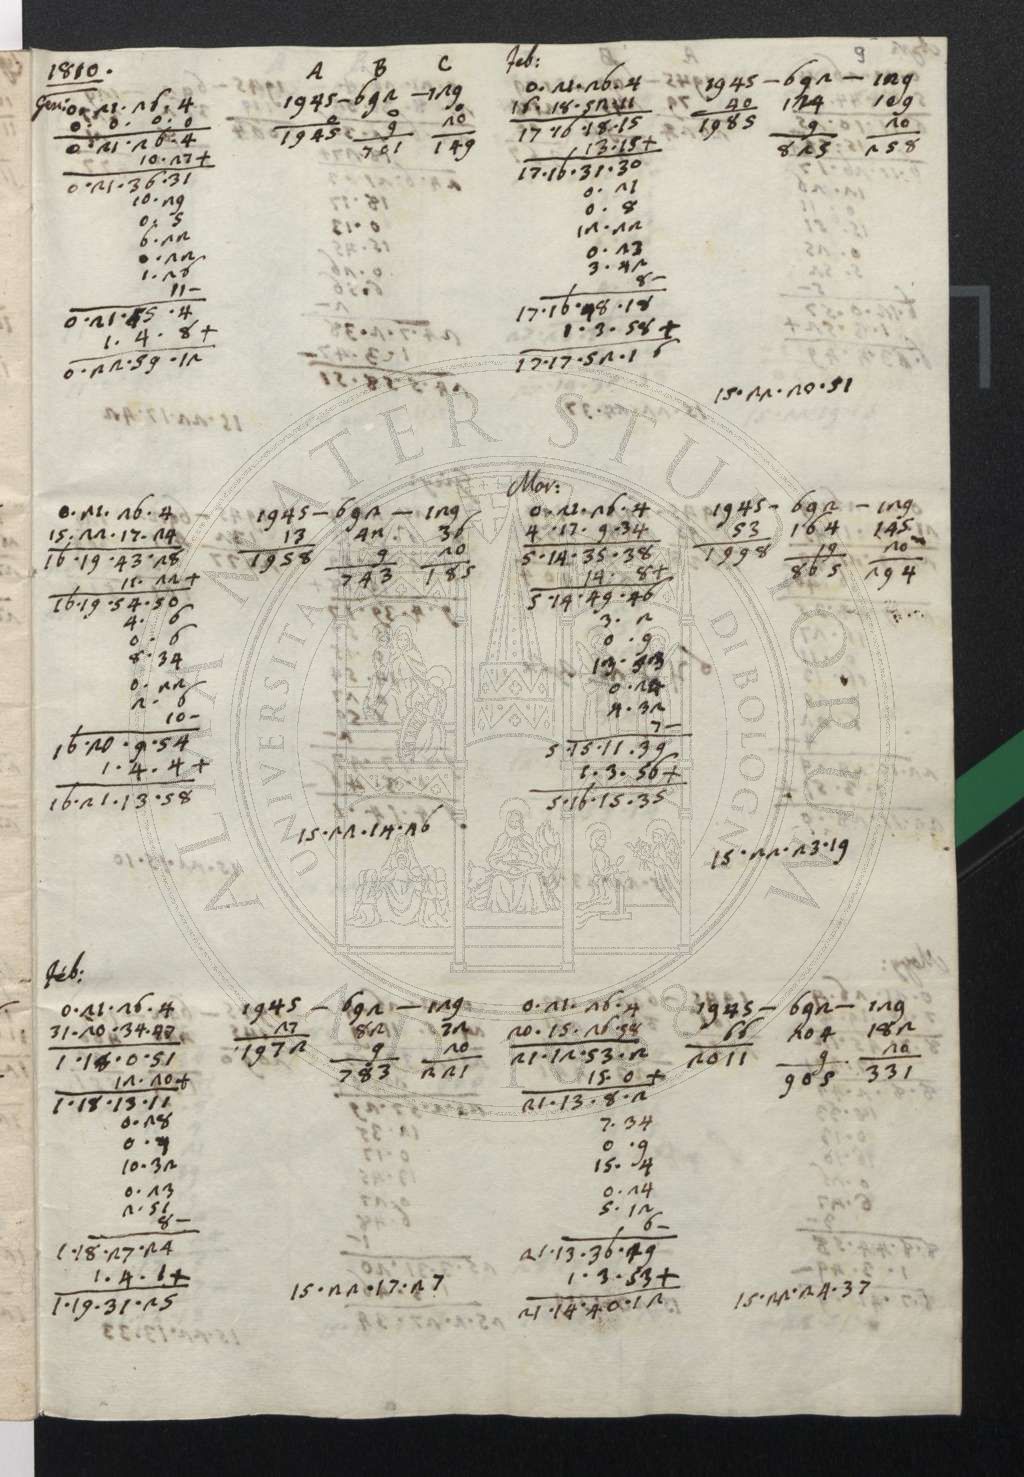 9
1810.
A B C
Gen: 0.21.26.4
1945 – 692 – 129
0. 0. 0. 0
0 0 0
0.21.26.4
1945 9 20
10.27+
701 149
0.21.36.31
10.29
0. 5
6.22
0.22
1.26
11–
0.21.55.4
1. 4. 8+
0.22.59.12
Feb:
0.21.26.4
1945 – 692 – 129
16.18.52.11
40 124 109
17.16.18.15
1985 9 20
13.15+
825 258
17.16.31.30
0.21
0. 8
12.22
0.23
3.42
8–
17.16.48.18
1.3.58+
17.17.52.16
15.22.20.51
0.21.26.4
1945 – 692 – 129
15.22.17.24
13 42 36
16.19.43.28
1958 9 20
11.22+
743 185
16.19.54.50
4. 6
0. 6
8.34
0.22
2. 6
10–
16.20.9.54
1. 4. 4+
16.21.13.58
15.22.14.26
Mar:
0.21.26.4
1945 – 692 – 129
4.17.9.34
53 164 145
5.14.35.38
1998 9 20
14. 8+
865 294
5.14.49.46
3. 2
0. 9
13.53
0.24
4.32
7–
5.15.11.39
1.3.56+
5.16.15.35
15.22.23.19
Feb:
0.21.26.4
1945 – 692 – 129
31.20.34.47
27 82 72
1.18.0.51
1972 9 20
12.20+
783 221
1.18.13.11
0.28
0. 7
10.32
0.23
2.51
8–
1.18.27.24
1.4.1+
1.19.31.25
15.22.17.27
0.21.26.4
1945 – 692 – 129
20.15.26.58
66 204 182
21.12.53.2
2011 9 20
15.0+
905 331
21.13.8.2
7.34
0.9
15.4
0.24
5.12
6–
21.13.36.19
1.3.53+
21.14.40.12
15.22.24.37
ALMA MATER STUDIORUM
UNIVERSITÀ DI BOLOGNA